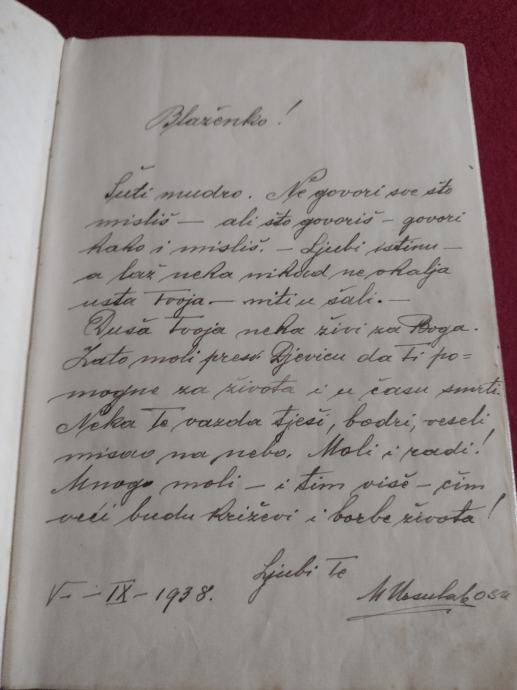 Blaženko!
Šuti mudro. Ne govori sve što
misliš — ali što govoriš — govori
kako i misliš. — Ljubi istinu —
a laž neka nikad ne okalja
usta tvoja — niti u šali. —
Duša tvoja neka živi za Boga.
Zato moli presv. Djevicu da ti po=
mogne za života i u času smrti.
Neka te vazda tješi, bodri, veseli
misao na nebo. Moli i radi!
Mnogo moli — i tim više — čim
veći budu križevi i borbe života!
Ljubi te
V — IX — 1938.
M Ursula